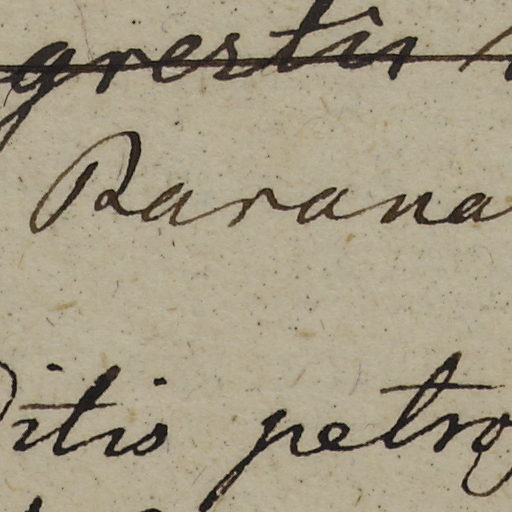 grestis
Barana
itis petro